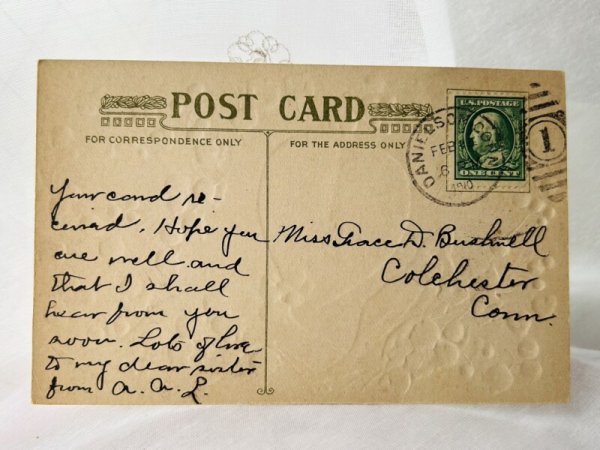 POST CARD
FOR CORRESPONDENCE ONLY
FOR THE ADDRESS ONLY
U.S. POSTAGE
ONE CENT
DANIELSON
FEB
1910
1
Your card re-
ceived. Hope you
are well and
that I shall
hear from you
soon. Lots of love
to my dear sister
from A. A. L.
Miss Grace D. Bushnell
Colchester
Conn.